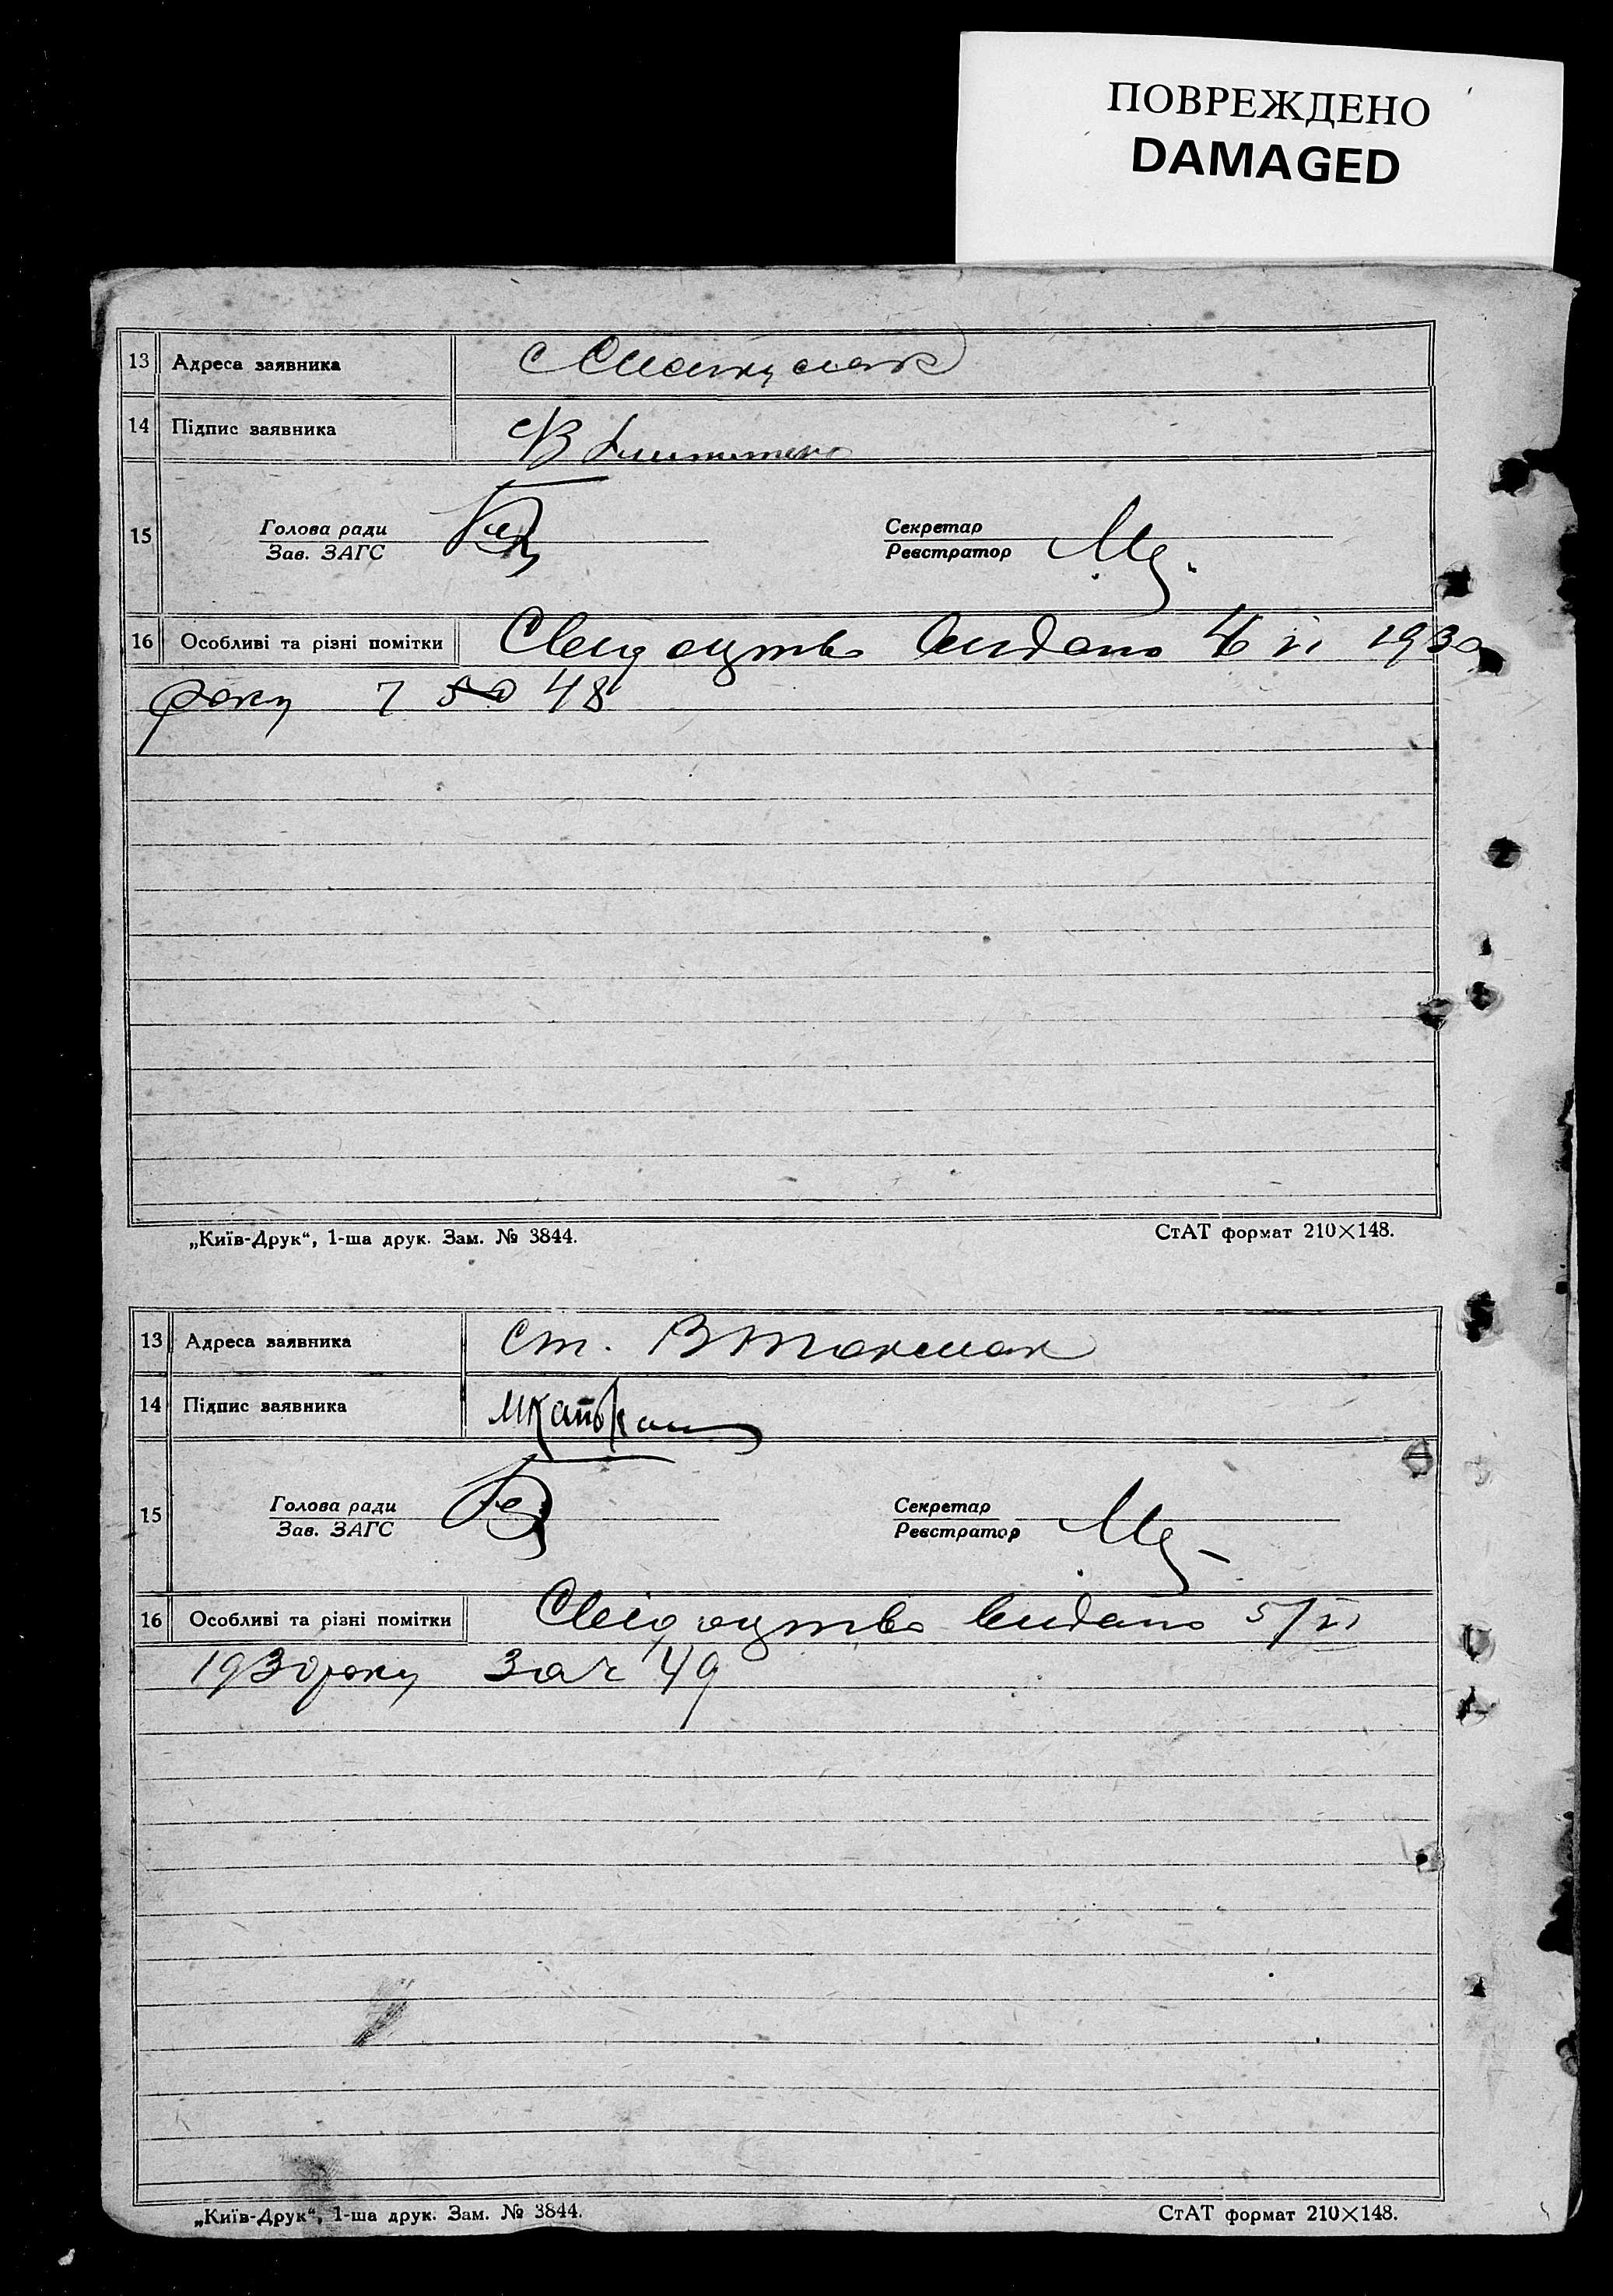 ПОВРЕЖДЕНО
DAMAGED
13 Адреса заявника с
14 Підпис заявника
15 Голова ради Секретар
Зав. ЗАГС Реєстратор
16 Особливі та різні помітки Свідоцтво видано 4 VI 1930
року 7 50 48
„Київ-Друк“, 1-ша друк. Зам. № 3844. СтАТ формат 210×148.
13 Адреса заявника ст. В Токмак
14 Підпис заявника
15 Голова ради Секретар
Зав. ЗАГС Реєстратор
16 Особливі та різні помітки Свідоцтво видано 5/VI
1930 року за ч 49
„Київ-Друк“, 1-ша друк. Зам. № 3844. СтАТ формат 210×148.